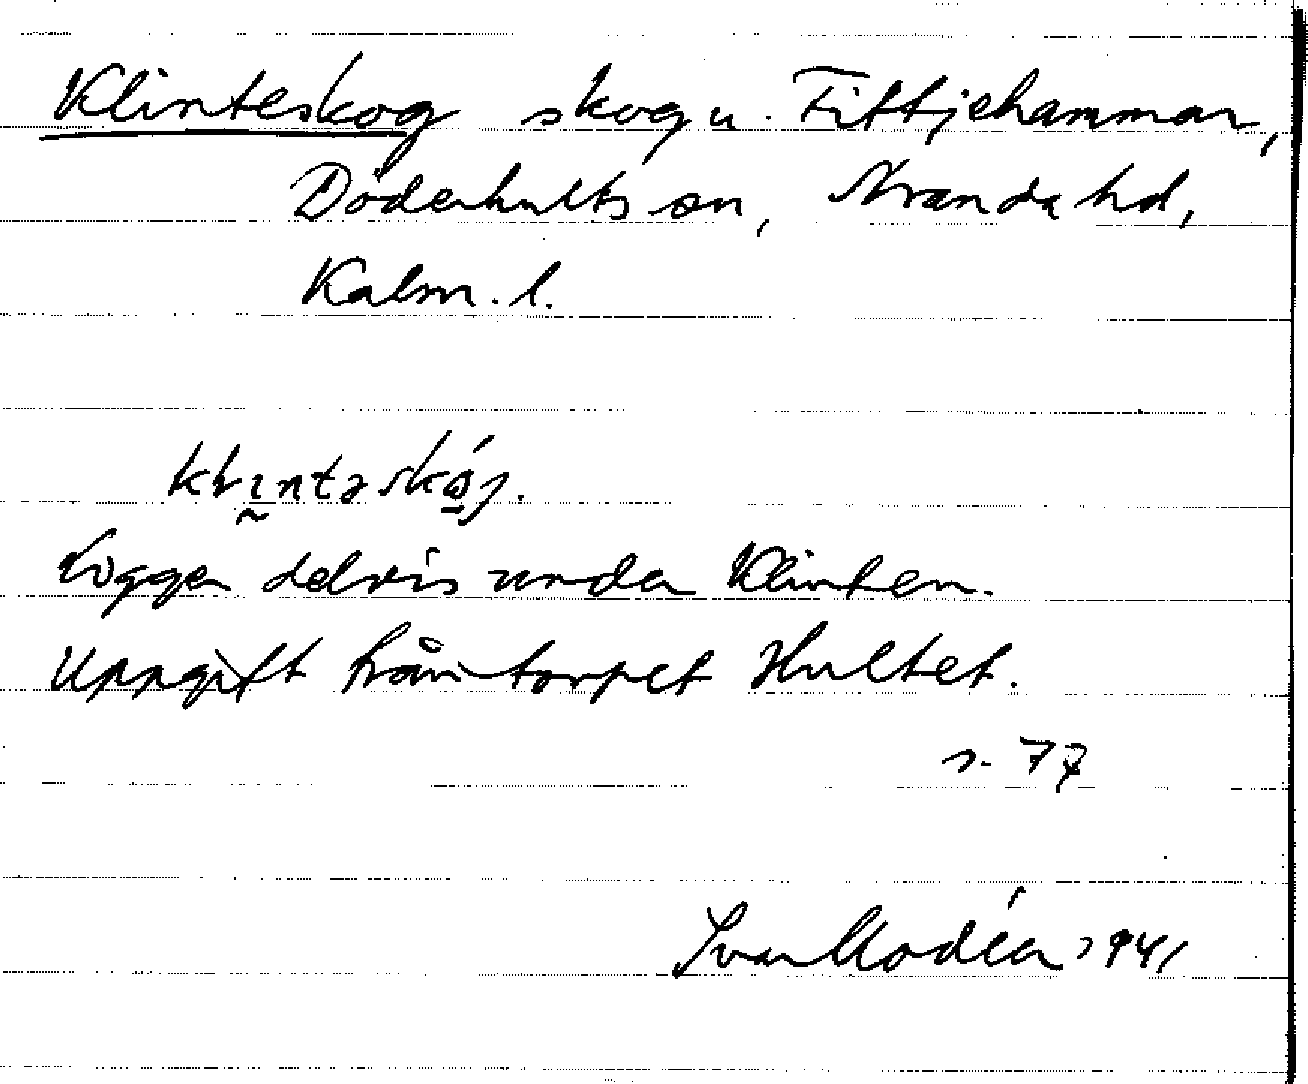 Klinteskog skog u. Fittjehammar,
Döderhults sn, Stranda hd,
Kalm. l.
Ligger delvis under Klinten.
Uppgift från torpet Hultet.
s. 77
Ivar Modéer 1941